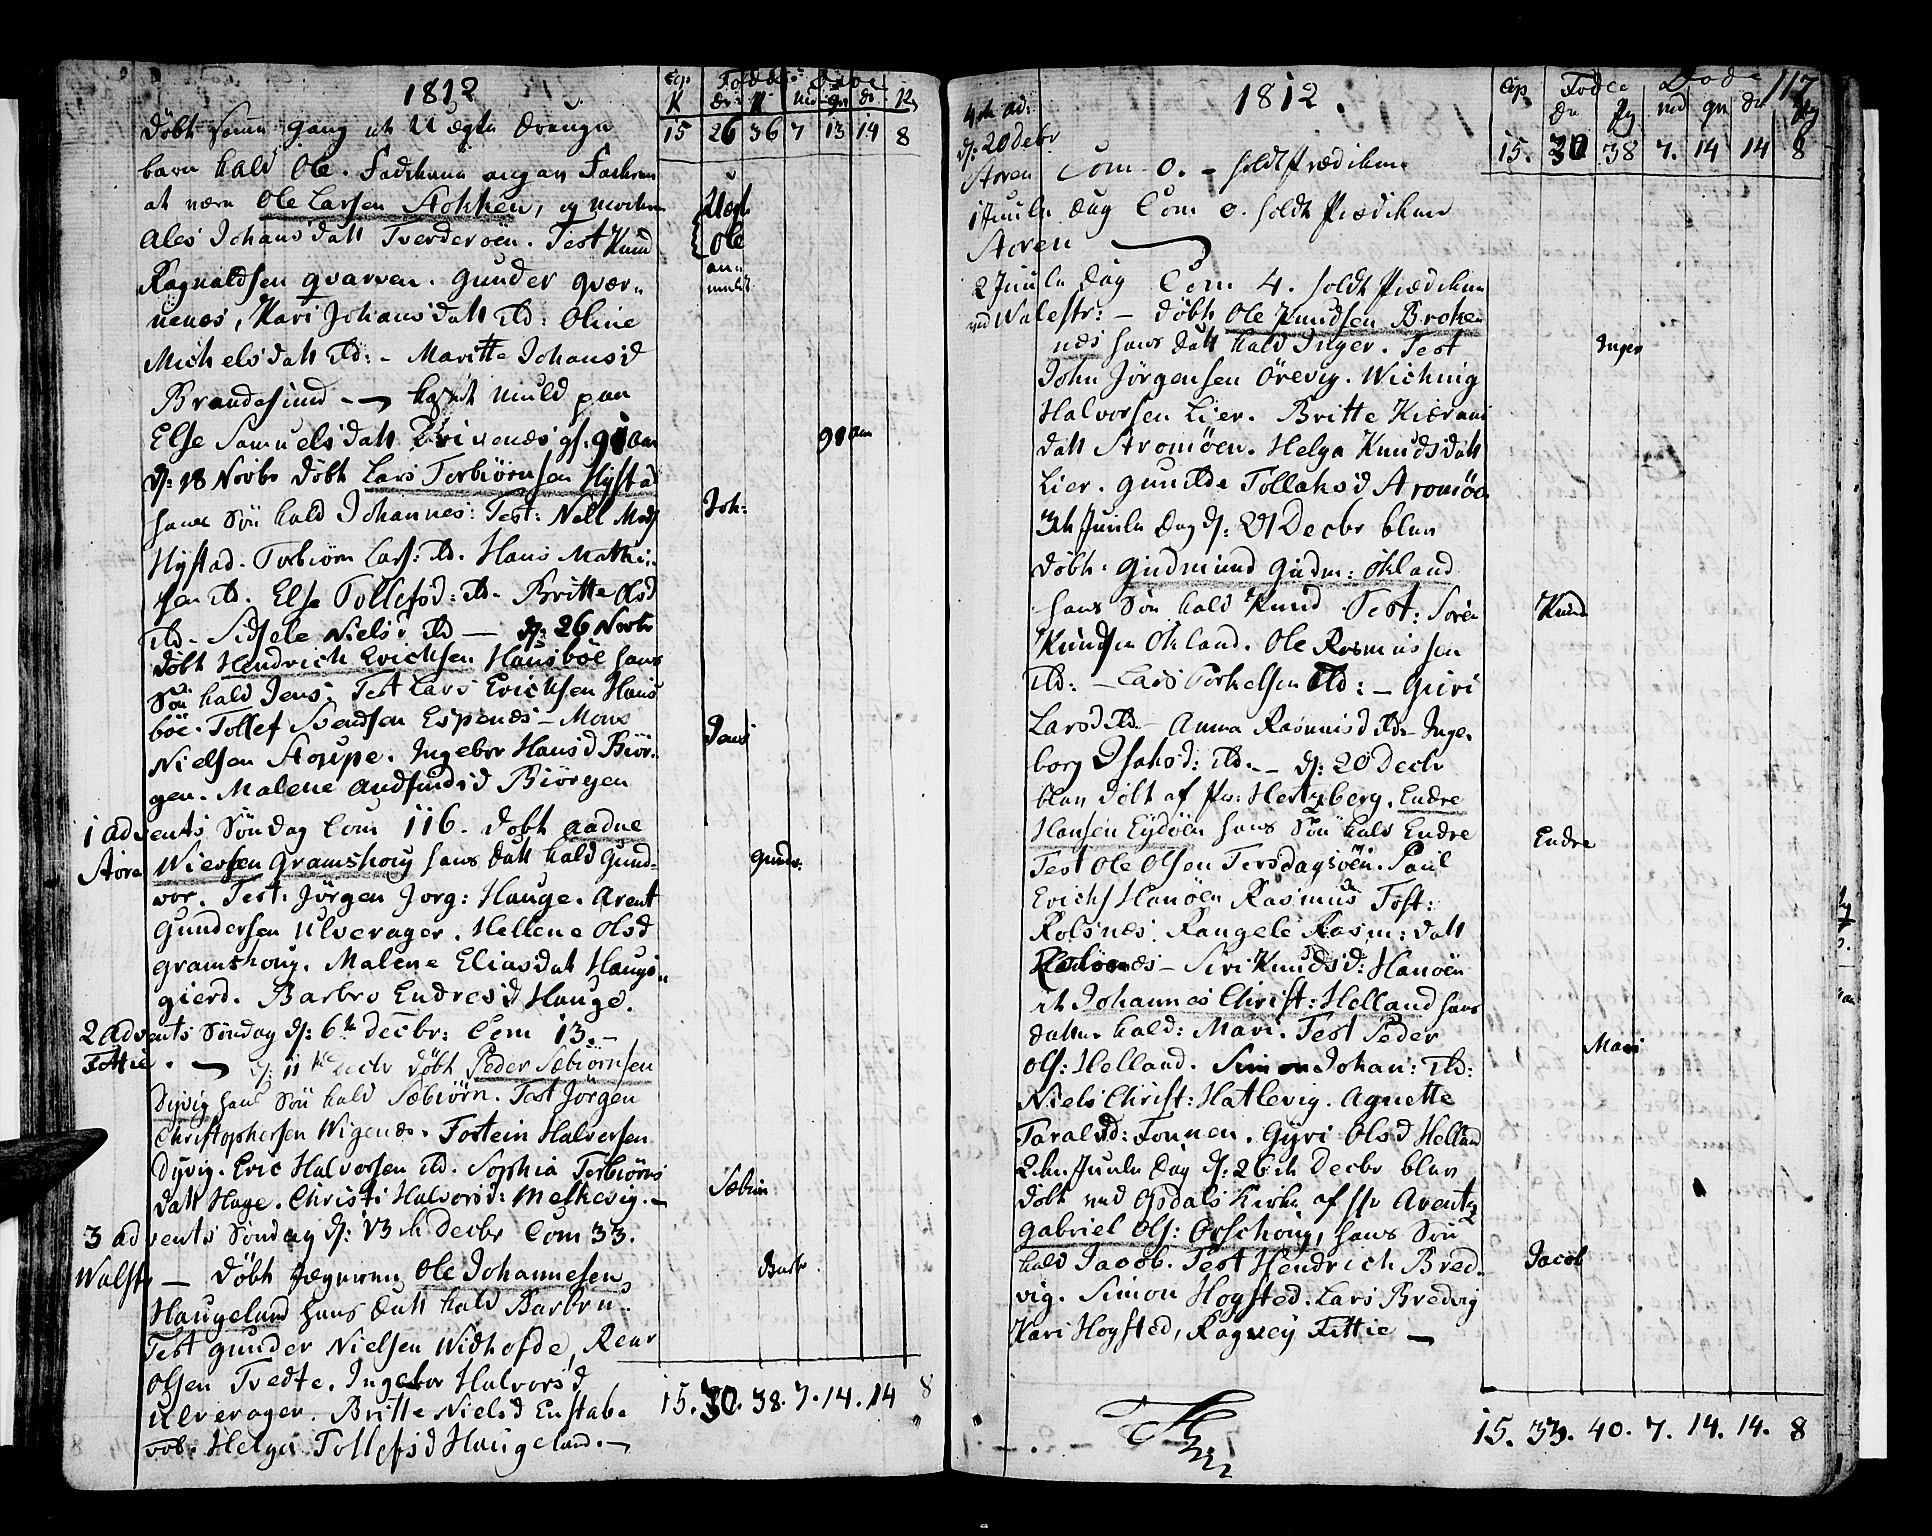 1812
Cop Födde Döde
K dr P md qv dr P
15 26 36 7 13 14 8
döbt samme gang et Uægte drenge
barn kald Ole. Fadderne angav Faderen
at være Ole Larsen Stokken, og moderen
Ales Johansdatt Tverderöen. Test Knud
Ragnaldsen qvarven. Gunder qvær-
nenes, Kari Johansdatt ibd: Oline
Michelsdatt ibd: - Maritte Johansd
Brandesund - kastet muld paa
Else Samuelsdatt gl. 91 aar
d: 18 Novbr döbt Lars Torbiörnsen Hystad
hans Sön kald Johannes: Test: Nell Mads
Hystad. Torbiörn Lars: ibd. Hans Mathi-
sen ibd. Else Tollefsd: ibd. Britte Olsd
ibd - Sidsele Nielsd ibd — d: 26 Novbr
döbt Hendrich Erichsen Hausböe hans
Sön kald Jens. Test Lars Erichsen Haus
böe. Tollef Svendsen Espenes - Mons
Nielsen Stoupe. Ingebor Hansd Biör-
gen. Malene Andfindsd Biörgen
1 advents Söndag Com 116. döbt Aadne
Störe Nielsen Gramshoug hans datt kald Gund-
vor. Test: Jörgen Jorg: Hauge. Arent
Gundersen Ulverager. Hellene Olsd
Gramshoug. Malene Eliasdat Haugs-
gierd. Barbro Endresd Hauge.
2 Advents Söndag d: 6te Decbr: Com 13. -
Fittie. — d: 11te Decbr döbt Peder Sæbiörnsen
Dyvig hans Sön kald Sæbiörn. Test Jörgen
Christophersen Wigenes. Tostein Halvorsen
Dyvig. Eric Halvorsen ibd. Sophia Torbiörns
datt Hage. Christi Halvorsd: Melkevig. -
3 advents Söndag d: 13th Decbr Com 33.
Walestr — döbt Ole Johannesen
Haugeland hans datt kald Barbru.
Test Gunder Nielsen Widhofde, Rear
Olsen Tvedte. Ingebor Halvorsd
Ulverager. Britte Nielsd Enstabe
vol. Helga Tollefsd Haugeland. -
Uægt
Ole
anm
meldt
91 aar
Joh:
Jens
Gundv:
Sæbiörn
Barbr
15. 30. 38. 7. 14. 14 8
1812. 117
Cop Födde Döde
dr Pg md qv dr Pg
15. 30 38 7. 14 14 8
4th ad:
d: 20 debr
Storen Com - 0. - holdt Prædiken
1 Juule dag Com 0. holdt Prædiken
Storen
2 Juule Dag Com 4. holdt Prædiken
ved Walestr: - döbt Ole Knudsen Broke-
nes hans datt kald Inger. Test
John Jörgensen Örevig. Wichning
Halvorsen Lier. Britte
datt Stromöen. Helga Knudsdatt
Lier. Gunilde Tollaksd Stromöe.
3th Juule Dag d: 27 Decbr blev
döbt: Gudmund Gudm: Ökland
hans Sön kald Knud. Test: Sören
Knudsen Ökland. Ole Rasmussen
ibd: - Lars Torkelsen ibd: - Guri
Larsd ibd. - Anna Rasmusd ibd - Inge-
borg Isaksd: ibd. - d: 20 Decbr
blev döbt af Pr: Hertzberg. Endre
Hansen Eydöen hans Sön kald Endre
Test Ole Olsen Tersdagsöen. Paul
Erichs Hanöen Rasmus Tost:
Rolsnes. Rangele Rasm: datt
Rolsnes - Siri Knudsd: Hanöen
it Johannes Christ: Helland hans
datter kald: Mari. Test Peder
Ols: Helland. Simon Johan: ibd:
Niels Christ: Hatlevig. Agnette
Taralsd: Fonnen. Gyri Olsd Helland
2den Juule Dag d: 26th Decbr blev
döbt ved Opdals Kirke af Hr Arentz
Gabriel Ols: Orschoug, hans Sön
kald Jacob. Test Hendrich Bred-
vig. Simon Hogsted. Lars Bredvig
Kari Hogsted, Ragvey Fittie —
Inger
Knud
Endre
Mari
Jacob
15. 33. 40. 7. 14. 14. 8